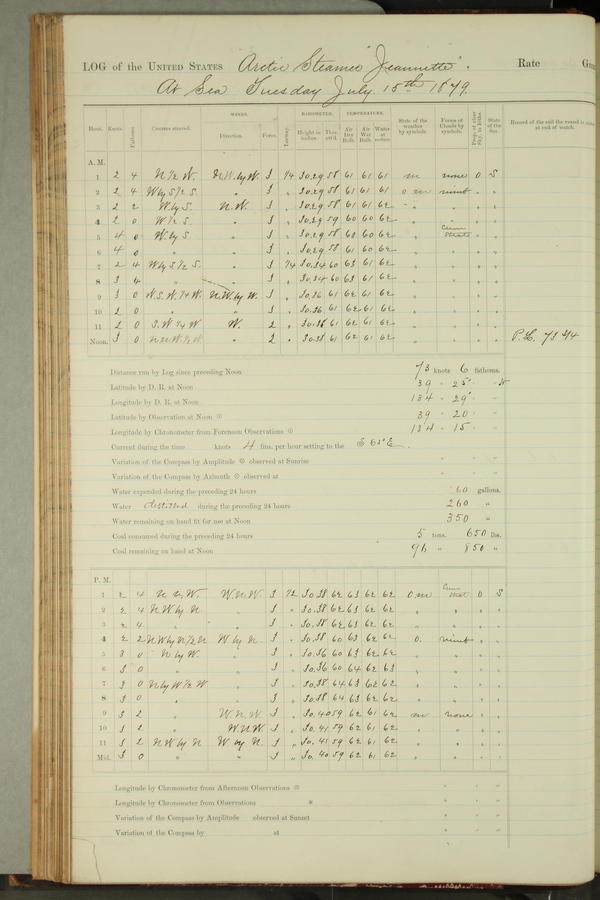 LOG of the UNITED STATES Arctic Steamer "Jeannette". Rate
At Sea Tuesday July 15th 1879.
WINDS. BAROMETER. TEMPERATURE.
Hour. Knots. Fathoms. Courses steered. Direction. Force. Leeway. Height in inches. Ther. att'd. Air Dry Bulb. Air Wet Bulb. Water at surface. State of the weather by symbols. Forms of Clouds by symbols. Prop. of clear Sky, in 10ths. State of the Sea. Record of the sail the vessel is under at end of watch.
A. M.
1 2 4 N.W. by W. 3 1/4 30.29 58 61 61 61 m none 0 S
2 2 4 W by S 1/2 S. " 3 " 30.29 58 61 61 61 o m nimb " "
3 2 2 W by S. N.W. 3 " 30.29 58 61 61 62 " " " "
4 2 0 W 1/2 S. " 3 " 30.29 59 60 60 62 " " " "
5 4 0 W. by S. " 3 " 30.29 58 60 60 62 " Cum Strat " "
6 4 0 " " 3 " 30.29 58 61 60 62 " " " "
7 2 4 W by S 1/2 S. " 3 1/4 30.34 60 63 61 62 " " " "
8 3 4 " " 3 " 30.34 60 63 61 62 " " " "
9 3 0 W.S.W. 1/4 W. N.W. by W. 3 " 30.36 61 62 61 62 " " " "
10 2 0 " " 3 " 30.36 61 62 61 62 " " " "
11 2 0 S.W 1/4 W W. 2 " 30.38 61 62 61 62 " " " "
Noon. 3 0 " 2 " 30.38 61 62 61 62 " " " " P.L. 73 3/4
Distance run by Log since preceding Noon 73 knots 6 fathoms.
Latitude by D. R. at Noon 39 ° 25' " N
Longitude by D. R. at Noon 134 ° 29' "
Latitude by Observation at Noon 39 ° 20 '
Longitude by Chronometer from Forenoon Observations 134 ° 15 '
Current during the time knots 4 fms. per hour setting to the E.
Variation of the Compass by Amplitude observed at Sunrise
Variation of the Compass by Azimuth observed at
Water expended during the preceding 24 hours 60 gallons.
Water distilled during the preceding 24 hours 260 "
Water remaining on hand fit for use at Noon 350 "
Coal consumed during the preceding 24 hours 5 tons. 650 lbs.
Coal remaining on hand at Noon 96 " 850 "
P. M.
1 2 4 N.N.W. W.N.W. 3 1/2 30.38 62 63 62 62 o m Cum Strat 0 S
2 2 4 N W by N " 3 " 30.38 62 63 62 62 " " " "
3 2 4 " " 3 " 30.38 62 63 62 62 " " " "
4 2 2 N W by N 1/2 N W by N. 3 " 30.38 60 63 62 62 o. nimb " "
5 3 0 N by W. " 3 " 30.36 60 63 62 62 " " " "
6 3 0 " " 3 " 30.36 60 64 62 63 " " " "
7 3 0 N by W 1/2 W " 3 " 30.38 64 63 62 62 " " " "
8 3 0 " " 3 " 30.38 64 63 62 62 " " " "
9 3 2 " W.N.W. 3 " 30.40 59 62 61 62 m none " "
10 3 2 " W.N.W 3 " 30.41 59 62 61 62 " " " "
11 3 2 N W by N W by N. 3 " 30.41 59 62 61 62 " " " "
Mid. 3 0 " " 3 " 30.40 59 62 61 62 " " " "
Longitude by Chronometer from Afternoon Observations
Longitude by Chronometer from Observations *
Variation of the Compass by Amplitude observed at Sunset
Variation of the Compass by at